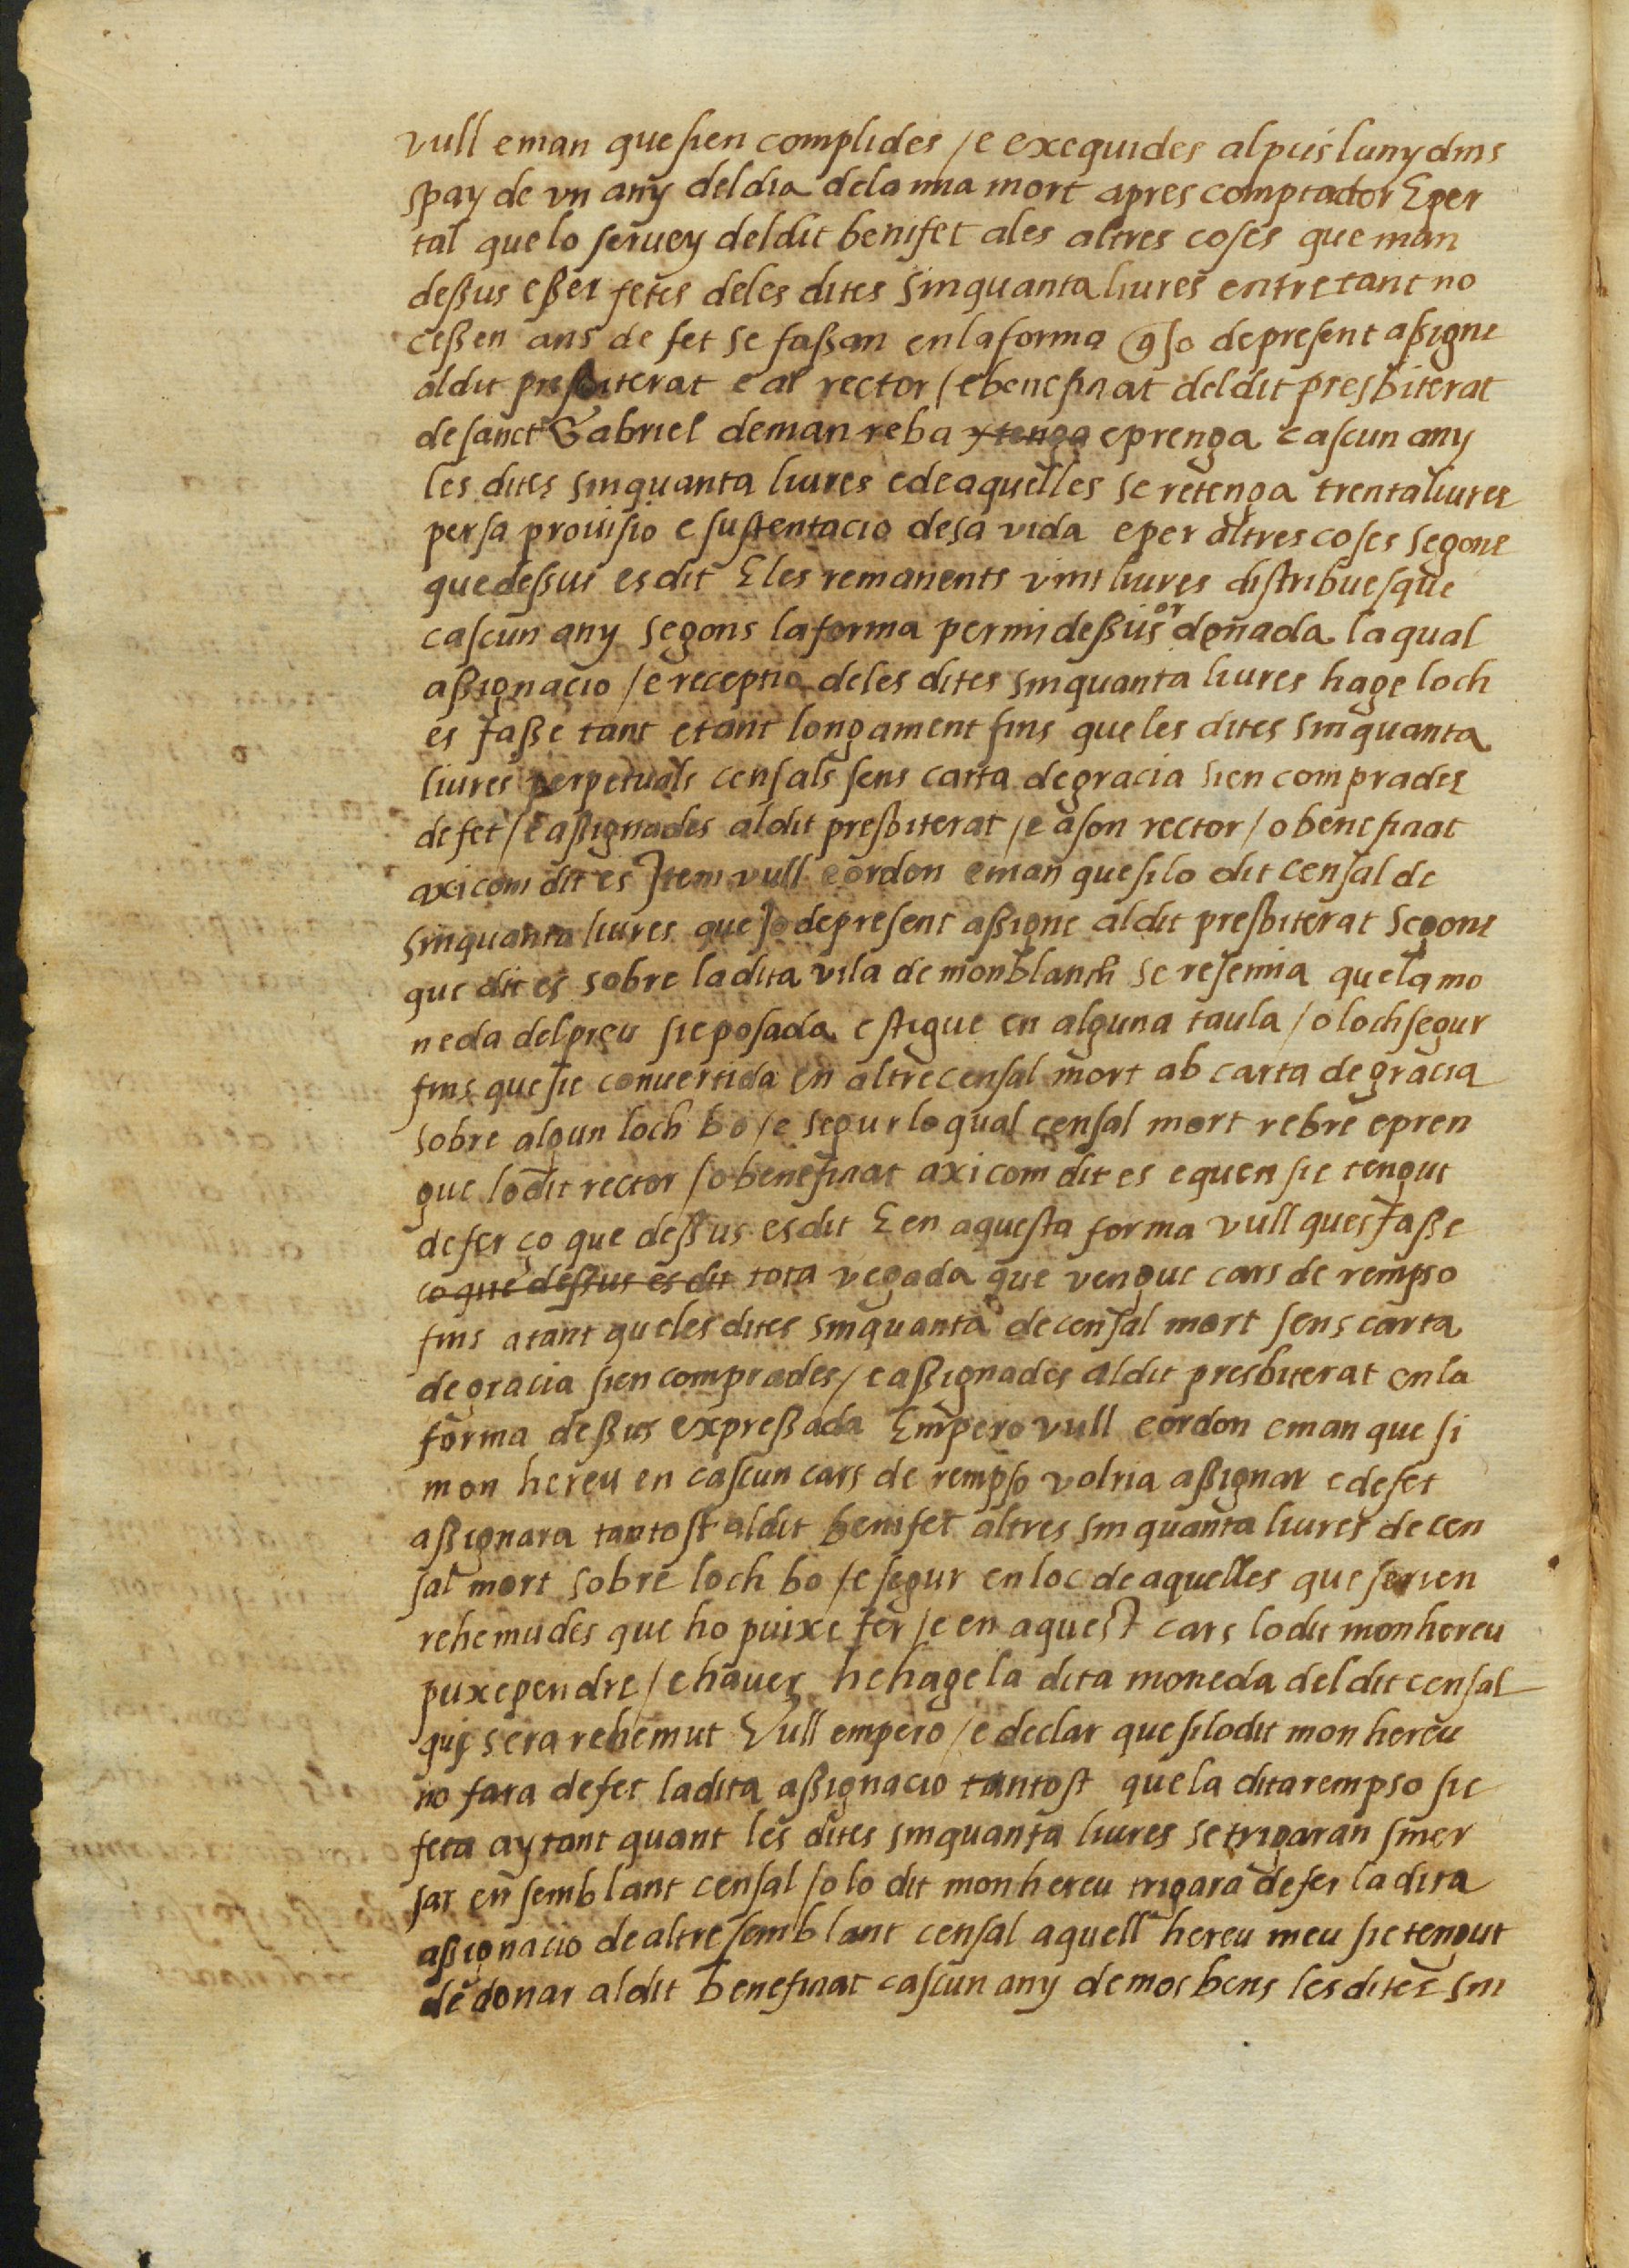 vull e man que sien complides / e exequides al pus luny dins
spay de vn any del dia dela mia mort apres comptador E per
tal que lo seruey del dit benifet ales altres coses que man
dessus esser fetes deles dites sinquanta liures entretant no
cessen ans de fet se fassan en la forma q jo de present assigne
al dit presbiterat e al rector / e beneficiat del dit presbiterat
de sanct Gabriel deman reba y tenga e prenga cascun any
les dites sinquanta liures e de aquelles se retenga trenta liures
per sa prouisio e sustentacio de sa vida e per altres coses segons
que dessus es dit E les remanents vint liures distribuesque
cascun any segons la forma per mi dessus or donada la qual
assignacio / e receptio deles dites sinquanta liures hage loch
es fasse tant e tant longament fins que les dites sinquanta
liures perpetuals censals sens carta de gracia sien comprades
de fet / e assignades al dit presbiterat / e a son rector / o beneficiat
axi com dit es Item vull e ordon e man que si lo dit censal de
sinquanta liures que jo de present assigne al dit presbiterat segons
que dit es sobre la dita vila de monblanch se resemia que la mo
neda del preu sie posada e stigue en alguna taula / o loch segur
fins que sie conuertida en altre censal mort ab carta de gracia
sobre algun loch bo / e segur lo qual censal mort rebre e pren
gue lo dit rector / o beneficiat axi com dit es e quen sie tengut
de fer ço que dessus es dit E en aquesta forma vull ques fasse
ço que dessus es dit tota vegada que vengue cars de rempso
fins a tant que les dites sinquanta de censal mort sens carta
de gracia sien comprades / e assignades al dit presbiterat en la
forma dessus expressada Empero vull e ordon e man que si
mon hereu en cascun cars de rempso volria assignar e de fet
assignara tantost al dit benifet altres sinquanta liures de cen
sal mort sobre loch bo / e segur en loc de aquelles que serien
rehemudes que ho puixe fer / e en aquest cars lo dit mon hereu
puxe pendre / e hauer he hage la dita moneda del dit censal
qui sera rehemut Vull empero / e declar que si lo dit mon hereu
no fara de fet la dita assignacio tantost que la dita rempso sie
feta aytant quant les dites sinquanta liures se trigaran smer
sar en semblant censal / o lo dit mon hereu trigara de fer la dita
assignacio de altre semblant censal aquell hereu meu sie tengut
de donar al dit beneficiat cascun any de mos bens les dites sin